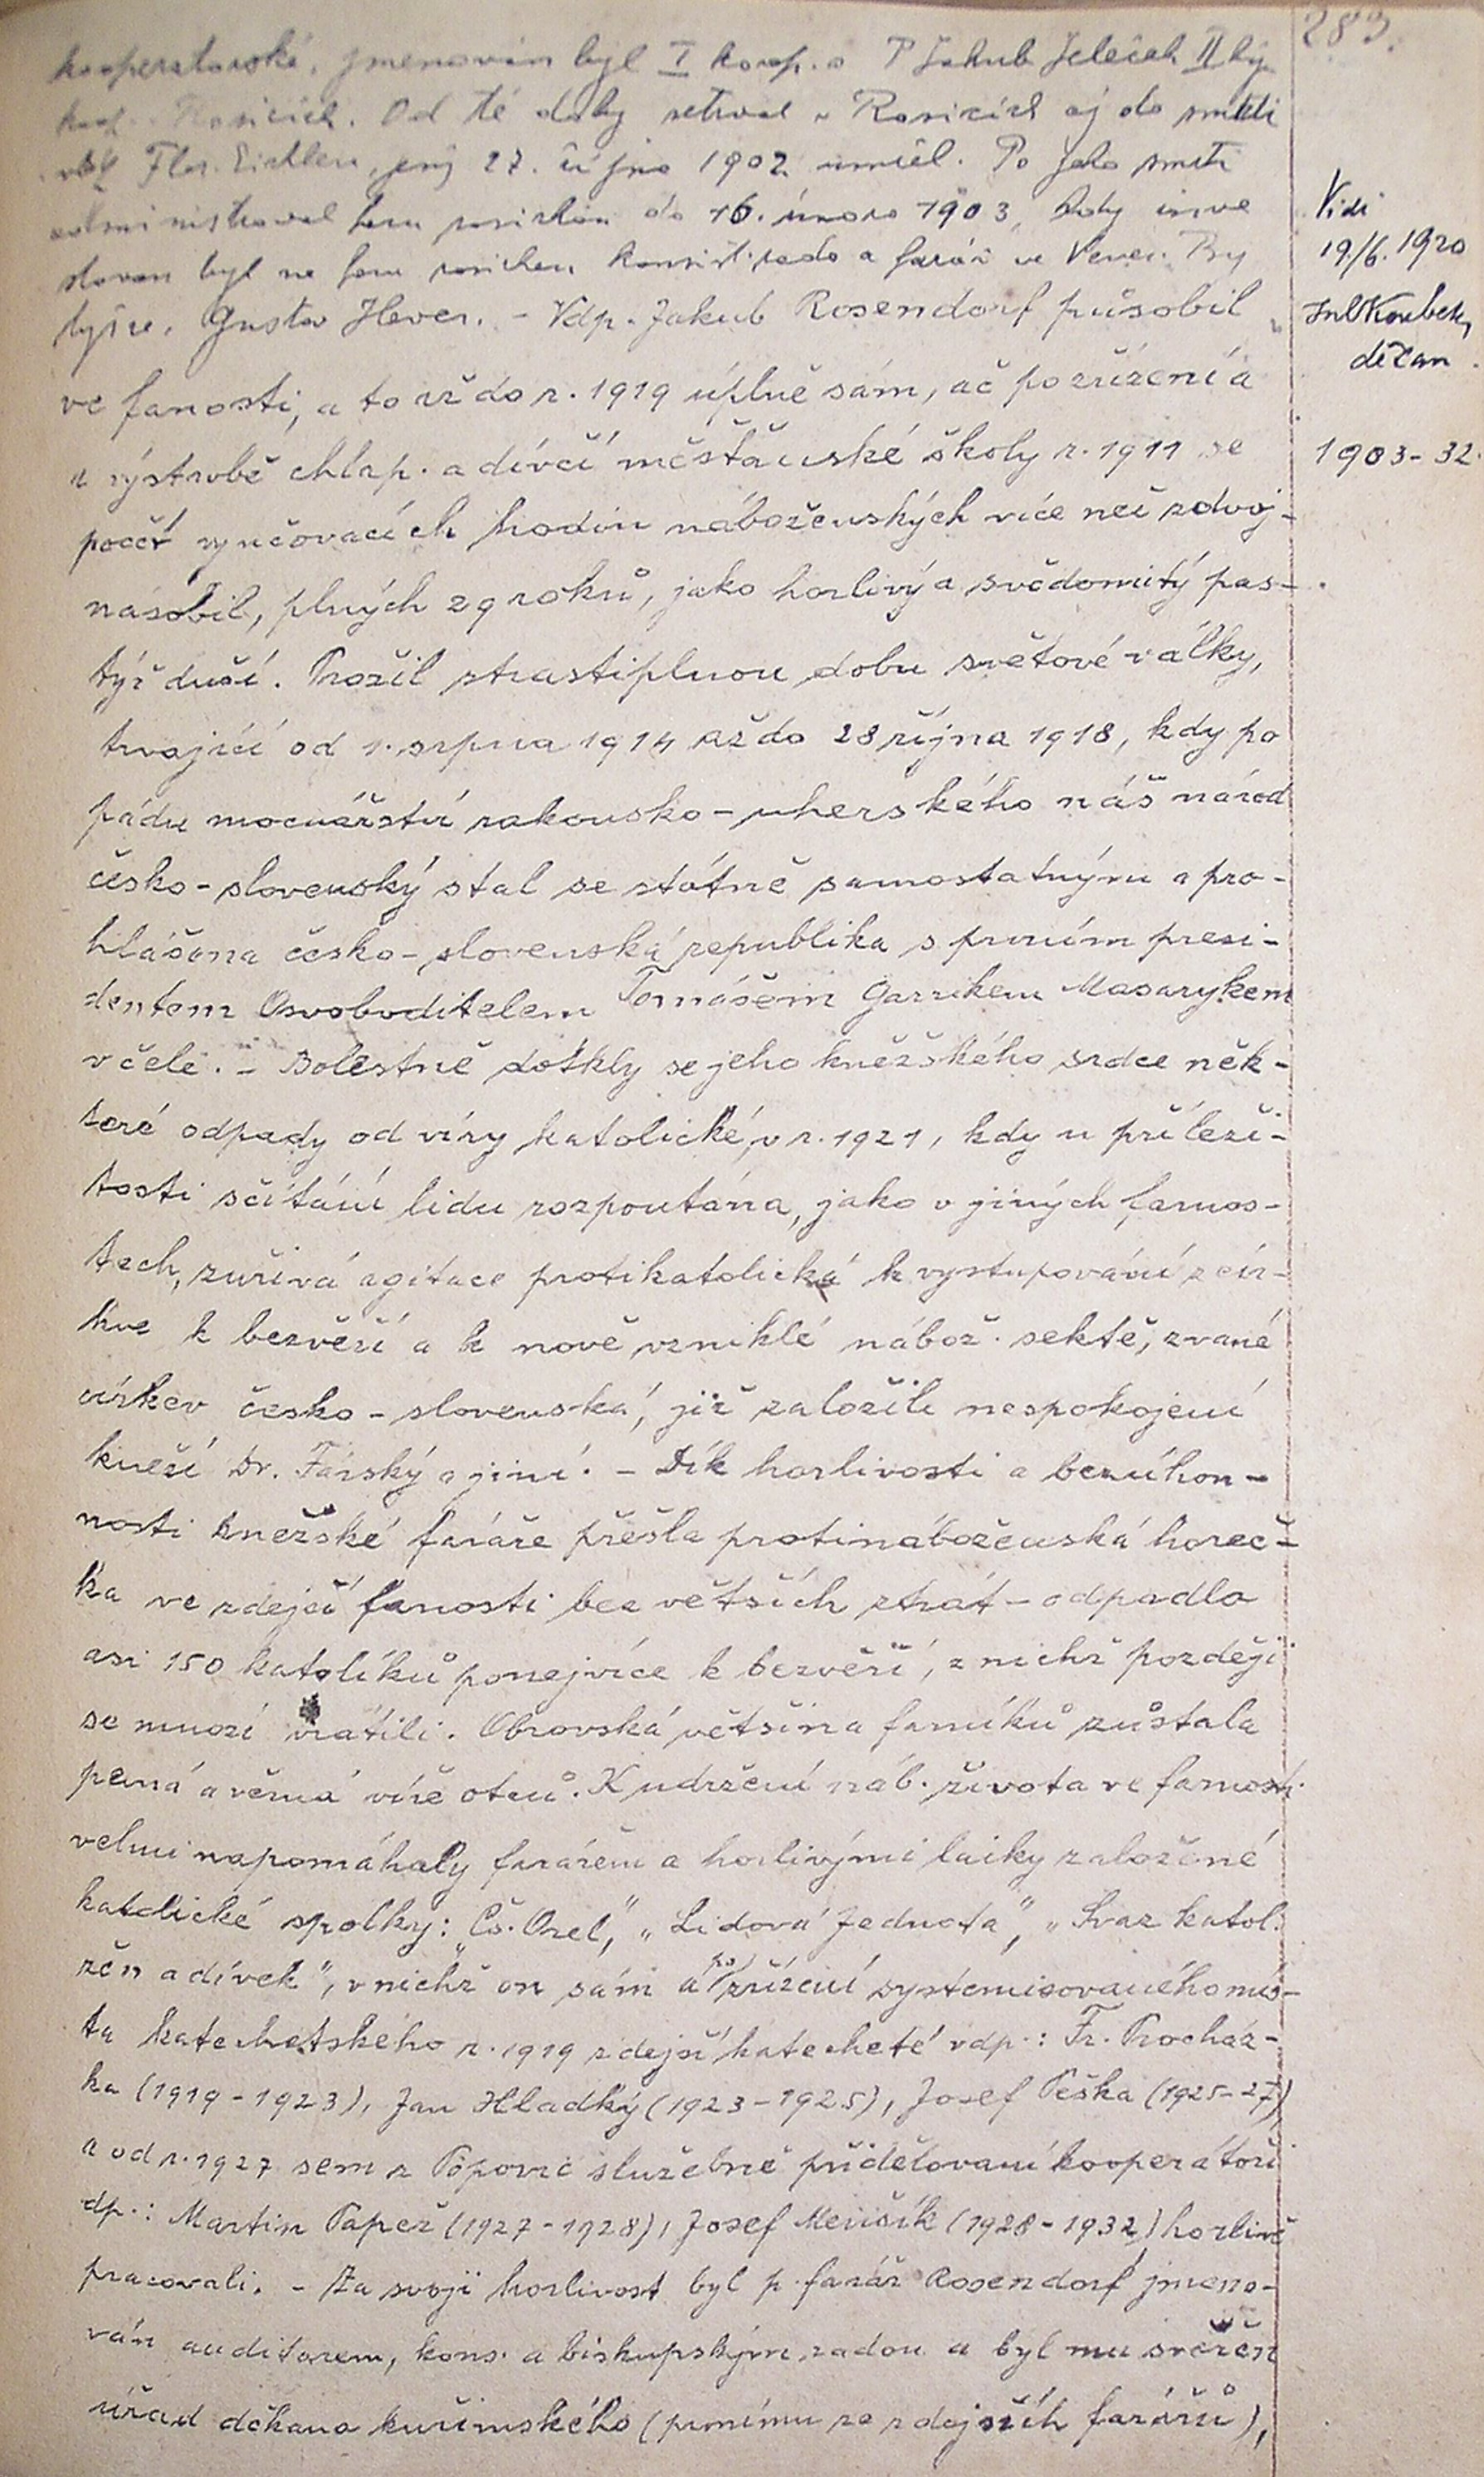 283.
kooperatorské, jmenován byl I koop. a P Jakub Jeleček II hý
koop. Rosicích. Od té doby setrval v Rosicích až do smrti
Flor. Eichlera, jenž 27. října 1902 umřel. Po jeho smrti
administroval faru rosickou do 16. února 1903, kdy inve
stován byl na faru rosickou konsist. rada a farář ve Bytýšce, Gustav Hever. – Vdp. Jakub Rosendorf působil
Vidi
19/6. 1920
Koubek,
děkan
ve farnosti, a to až do r. 1919 úplně sám, ač po zřízení a
a výstavbě chlap. a dívčí měšťanské školy r. 1911 se
1903-32.
počet vyučovacích hodin náboženských více než zdvoj-
násobil, plných 29 roků, jako horlivý a svědomitý pas-
týř duší. Prožil strastiplnou dobu světové války,
trvající od 1. srpna 1914 až do 28 října 1918, kdy po
pádu mocnářství rakousko-uherského náš národ
česko-slovenský stal se státně samostatným a pro-
hlášena česko-slovenská republika s prvním presi-
dentem Osvoboditelem Tomášem Garrikem Masarykem
v čele. – Bolestně dotkly se jeho kněžského srdce něk-
teré odpady od víry katolické, v r. 1921, kdy u příleži-
tosti sčítání lidu rozpoutána, jako v jiných farnos-
tech, zuřivá agitace protikatolická k vystupování z cír-
kve k bezvěří a k nově vzniklé nábož. sektě, zvané
církev česko-slovenská, již založili nespokojení
kněží Dr. Farský a jiní. – Dík horlivosti a bezúhon-
nosti kněžské faráře přešla protináboženská horeč-
ka ve zdejší farnosti bez větších ztrát – odpadlo
asi 150 katolíků ponejvíce k bezvěří, z nichž později
se mnozí vrátili. Obrovská většina farníků zůstala
pevná a věrná víře otců. K udržení náb. života ve farnosti
velmi napomáhaly farářem a horlivými laiky založené
katolické spolky: „Čs. Orel", „Lidová Jednota", „Svaz katol.
žen a dívek", v nichž on sám a po zřízení systemisovaného mís-
ta katechetského r. 1919 zdejší katecheté vdp.: Fr. Procház-
ka (1919-1923), Jan Hladký (1923-1925), Josef Peška (1925-27)
a od r. 1927 sem z Popovic služebně přidělovaní kooperátoři
dp.: Martin Papež (1927-1928), Josef Menšík (1928-1932) horlivě
pracovali. – Za svoji horlivost byl p. farář Rosendorf jmeno-
ván auditorem, kons. a biskupským radou a byl mu svěřen
úřad děkana kuřimského (prvnímu ze zdejších farářů),